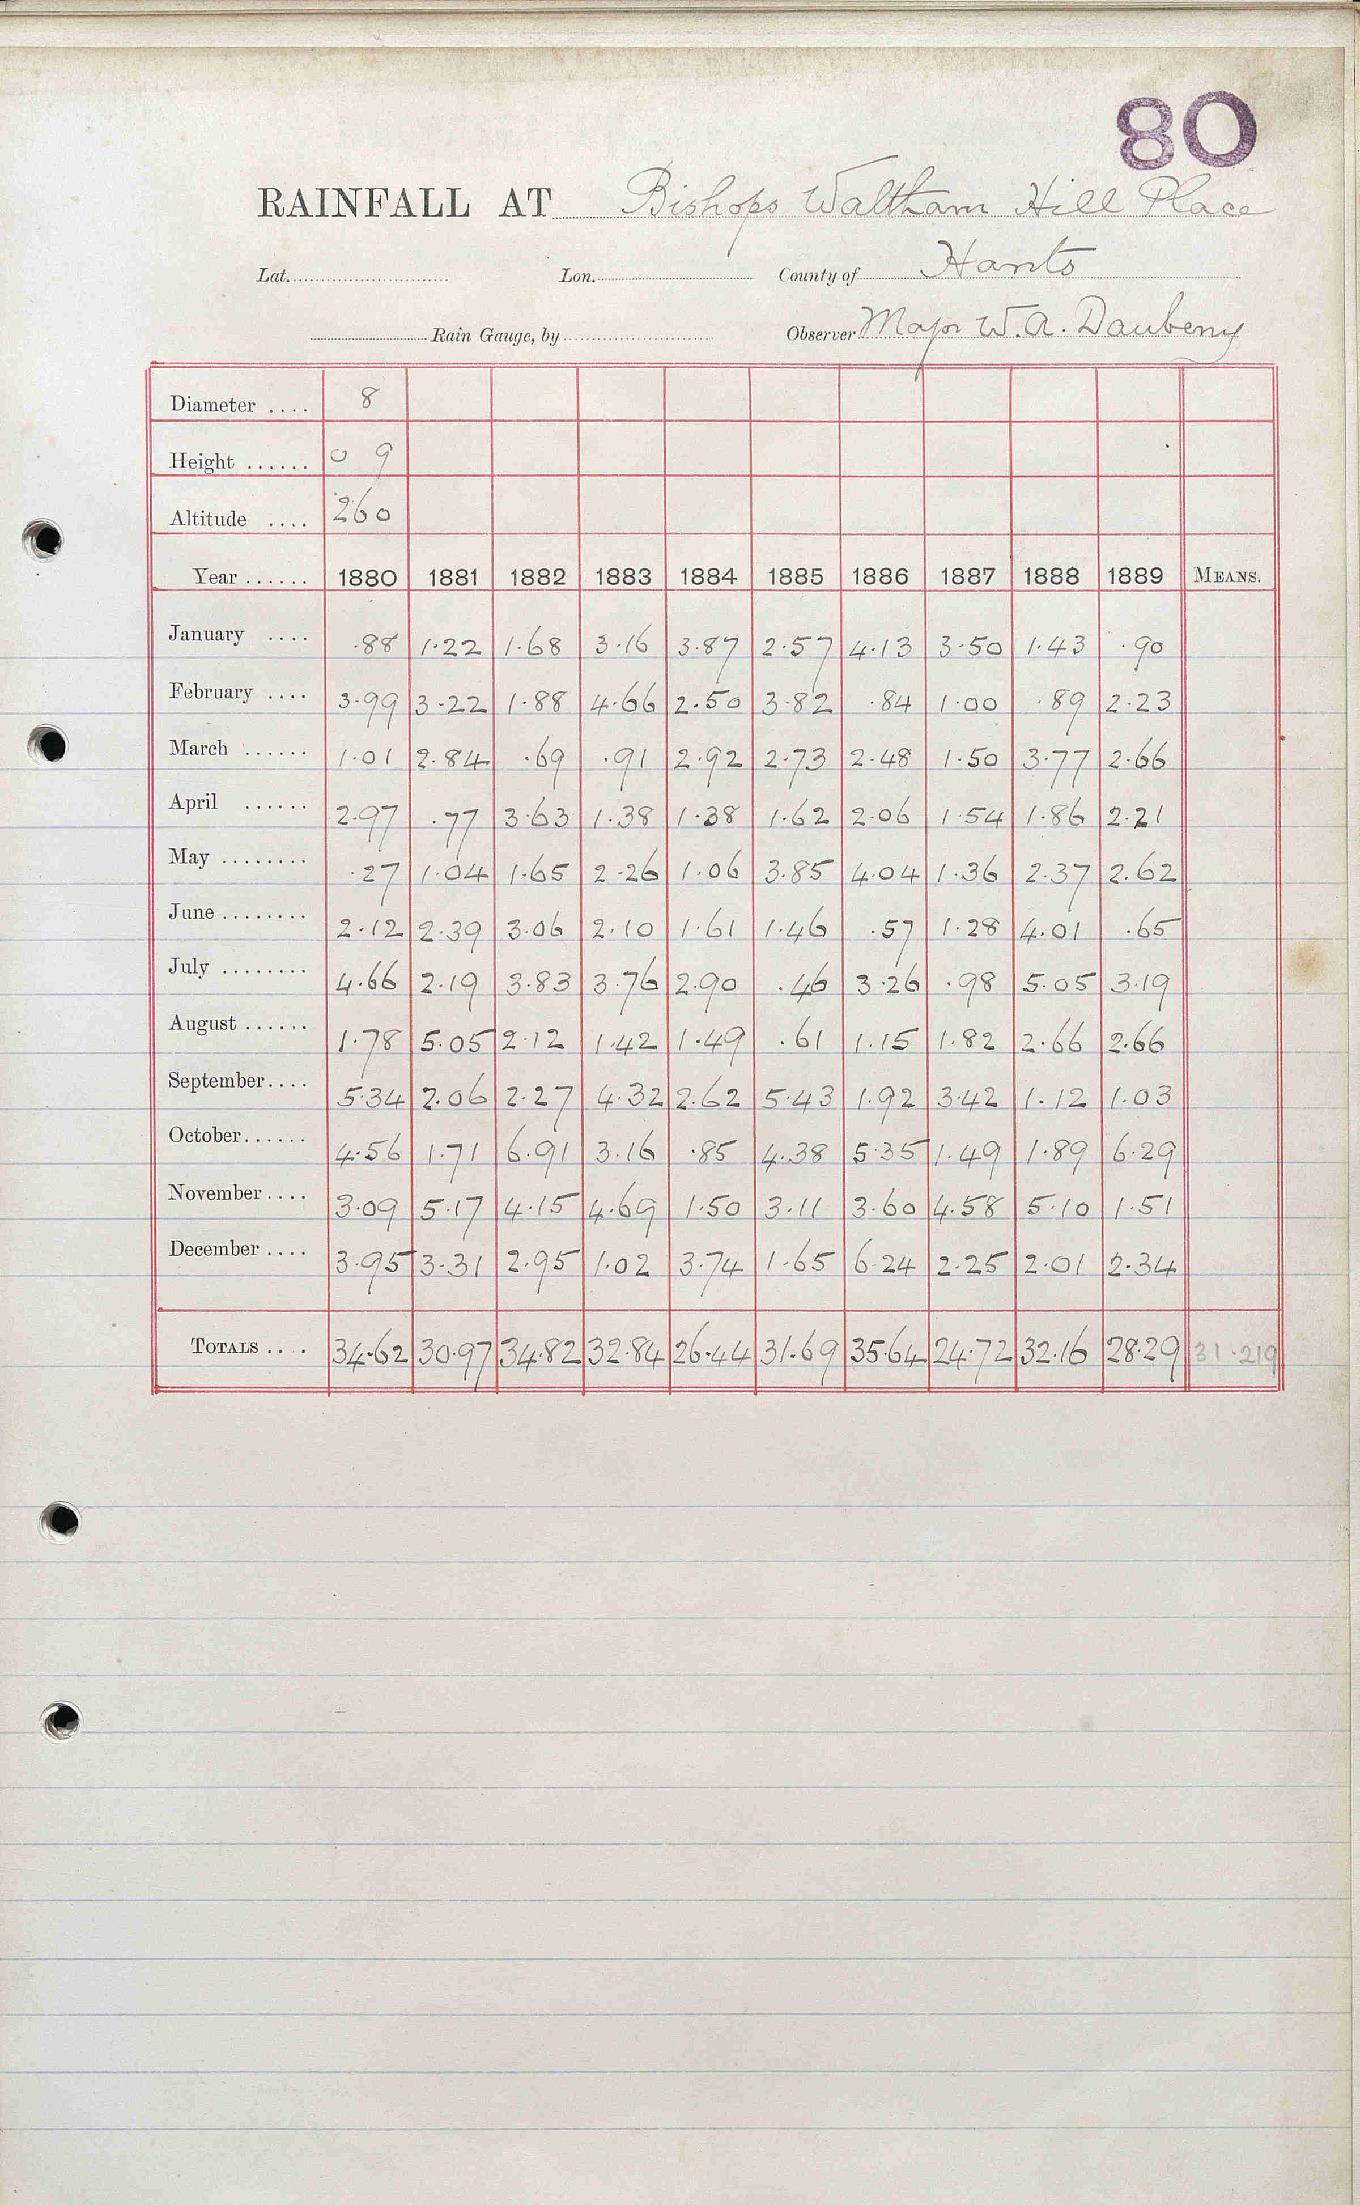 80
RAINFALL AT Bishops Waltham Hill Place
Lat. Lon. County of Hants
Rain Gauge, by Observer Major W. A. Daubeny
Diameter .... 8
Height ...... 0 9
Altitude .... 260
Year ...... 1880 1881 1882 1883 1884 1885 1886 1887 1888 1889 MEANS.
January .... .88 1.22 1.68 3.16 3.87 2.57 4.13 3.50 1.43 .90
February .... 3.99 3.22 1.88 4.66 2.50 3.82 .84 1.00 .89 2.23
March ...... 1.01 2.84 .69 .91 2.92 2.73 2.48 1.50 3.77 2.66
April ...... 2.97 .77 3.63 1.38 1.38 1.62 2.06 1.54 1.86 2.21
May ........ .27 1.04 1.65 2.26 1.06 3.85 4.04 1.36 2.37 2.62
June ........ 2.12 2.39 3.06 2.10 1.61 1.46 .57 1.28 4.01 .65
July ........ 4.66 2.19 3.83 3.76 2.90 .46 3.26 .98 5.05 3.19
August ...... 1.78 5.05 2.12 1.42 1.49 .61 1.15 1.82 2.66 2.66
September .... 5.34 2.06 2.27 4.32 2.62 5.43 1.92 3.42 1.12 1.03
October ...... 4.56 1.71 6.91 3.16 .85 4.38 5.35 1.49 1.89 6.29
November .... 3.09 5.17 4.15 4.69 1.50 3.11 3.60 4.58 5.10 1.51
December .... 3.95 3.31 2.95 1.02 3.74 1.65 6.24 2.25 2.01 2.34
TOTALS .... 34.62 30.97 34.82 32.84 26.44 31.69 35.64 24.72 32.16 28.29 31.219